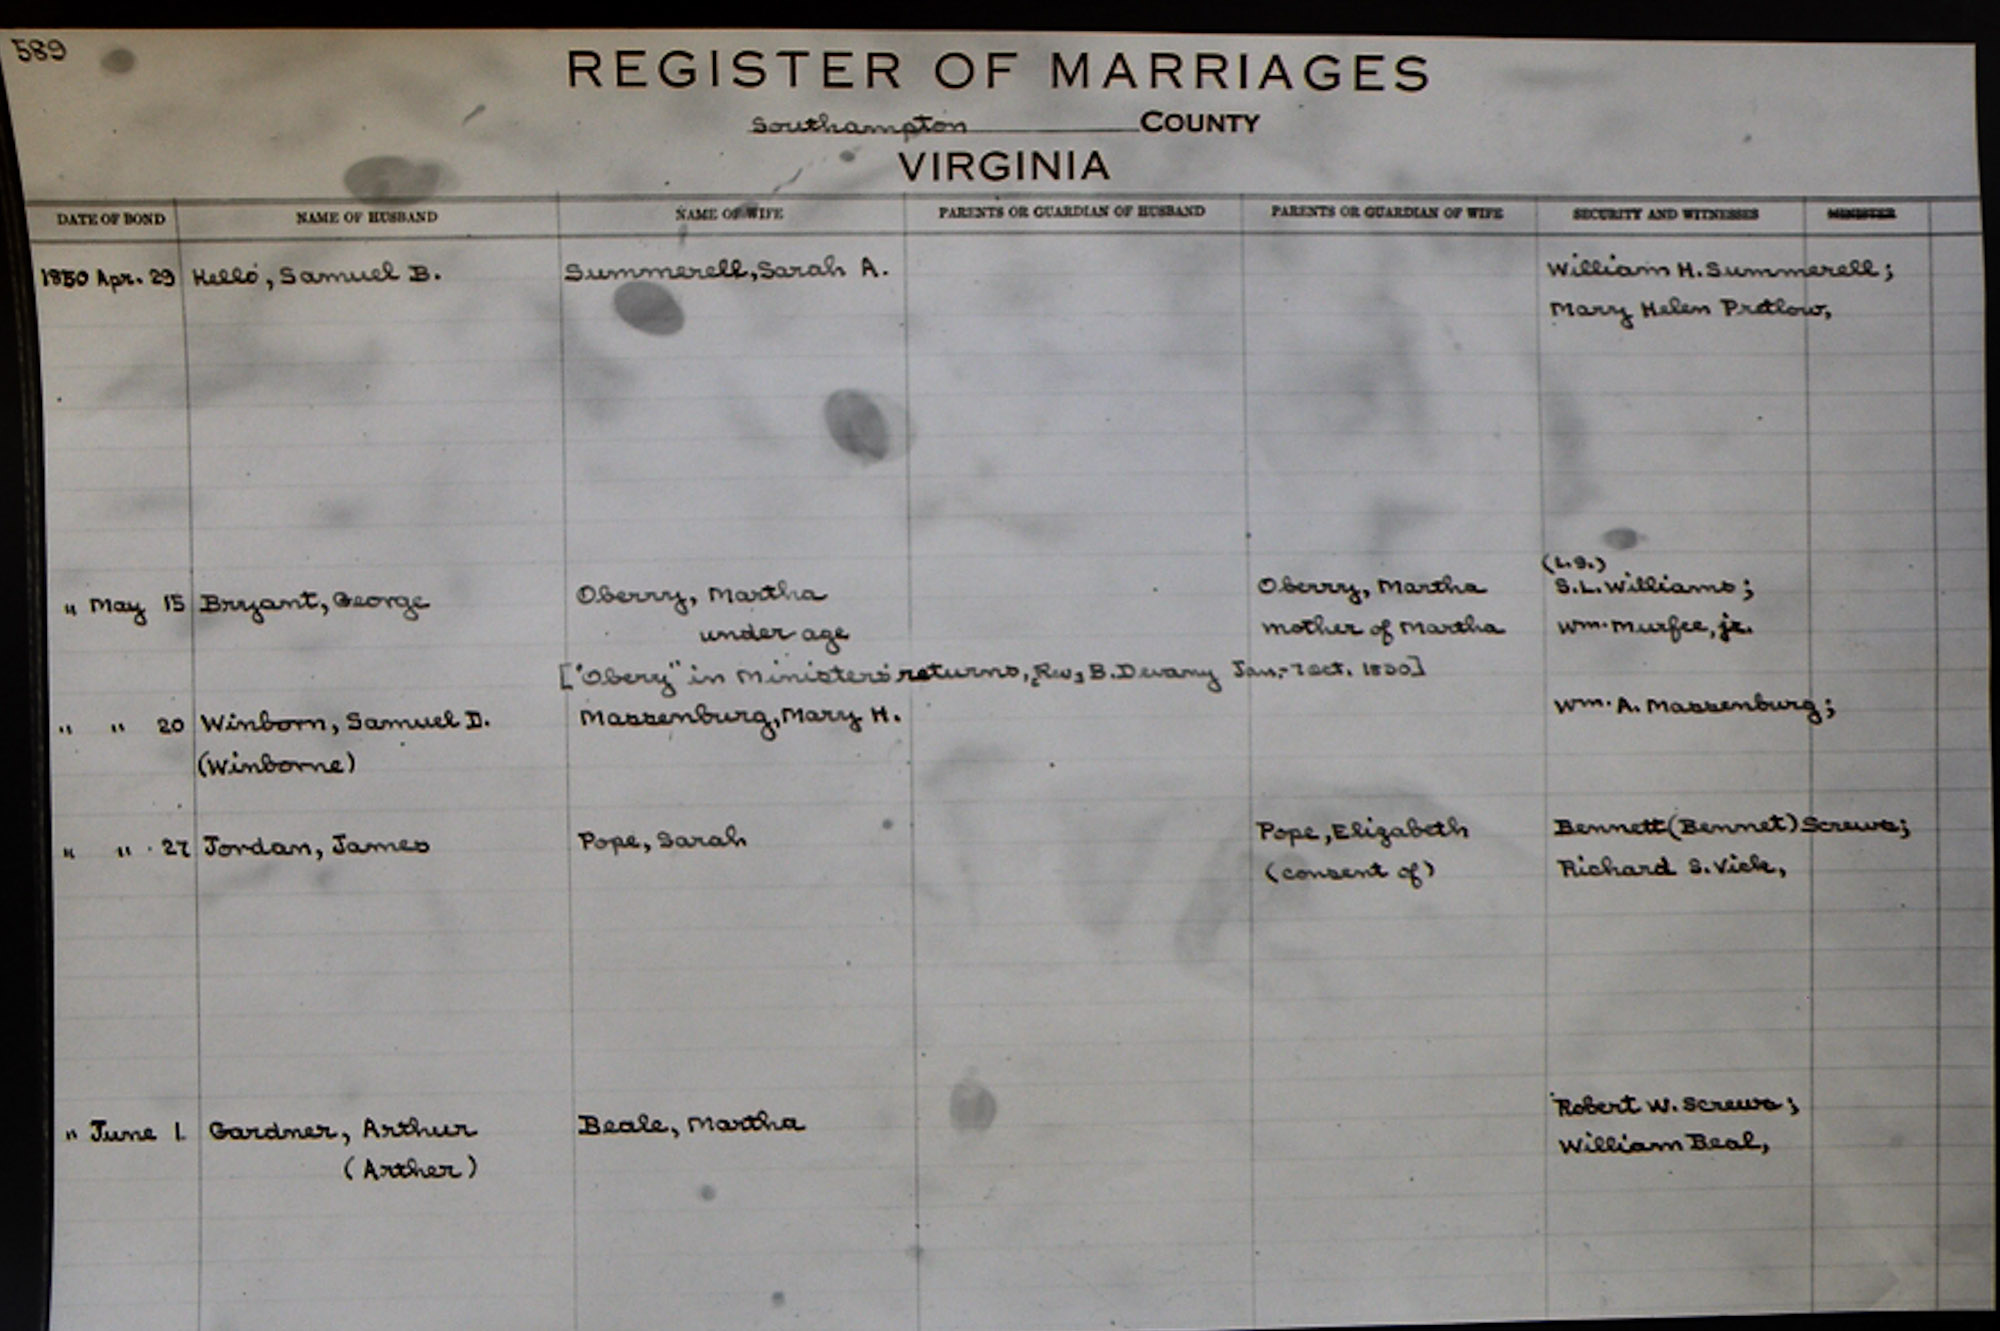 589
REGISTER OF MARRIAGES
Southampton COUNTY
VIRGINIA
DATE OF BOND NAME OF HUSBAND NAME OF WIFE PARENTS OR GUARDIAN OF HUSBAND PARENTS OR GUARDIAN OF WIFE SECURITY AND WITNESSES MINISTER
1850 Apr. 29 Hello, Samuel B. Summerell, Sarah A. William H. Summerell;
Mary Helen Pretlow,
(L.S.)
" May 15 Bryant, George Oberry, Martha Oberry, Martha S.L. Williams;
under age mother of Martha Wm. Murfee, jr.
["Obery" in Ministers' returns, Rev. B. Devany Jan.-7 Oct. 1850]
" " 20 Winborn, Samuel D. Massenburg, Mary H. Wm. A. Massenburg;
(Winborne)
" " 27 Jordan, James Pope, Sarah Pope, Elizabeth Bennett (Bennet) Screws;
(consent of) Richard S. Vick,
" June 1 Gardner, Arthur Beale, Martha Robert W. Screws;
(Arther) William Beal,